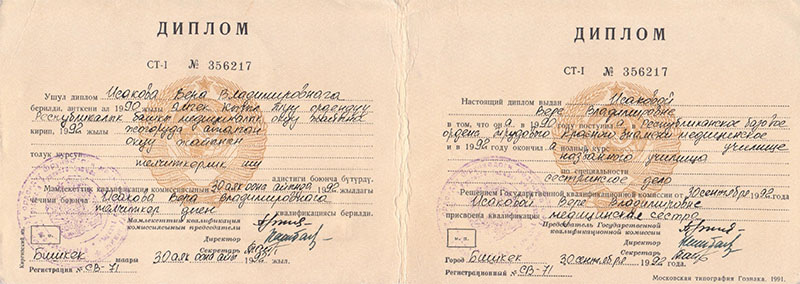 ДИПЛОМ
СТ-I № 356217
Ушул диплом Исакова Вера Владимировнага
берилди, анткени ал 1990 жылы Эмгек Кызыл Туу ордендүү
Республикалык медициналык окуу
кирип, 1992 жылы жогоруда аталган
окуу
толук курсун
адистиги боюнча бүтүрдү.
Мамлекеттик квалификация комиссиясынын 30 1992 жылдагы
чечими боюнча Исакова Вера Владимировнага
квалификациясы берилди.
Мамлекеттик квалификация
комиссиясынын председатели
Директор
Секретарь
Бишкек шаары 30 жыл.
Регистрация № СВ-71
ДИПЛОМ
СТ-I № 356217
Настоящий диплом выдан Исаковой
Вере Владимировне
в том, что она в 1990 году поступила в Республиканское базовое
ордена трудового Красного Знамени медицинское
училище
и в 1992 году окончила полный курс
названного училища
по специальности
сестринское дело
Решением Государственной квалификационной комиссии от 30 сентября 1992 года
Исаковой Вере Владимировне
присвоена квалификация медицинская сестра
Председатель Государственной
квалификационной комиссии
Директор
Секретарь
М. П.
Город Бишкек 30 сентября 1992 года.
Регистрационный № СВ-71
Московская типография Гознака. 1991.